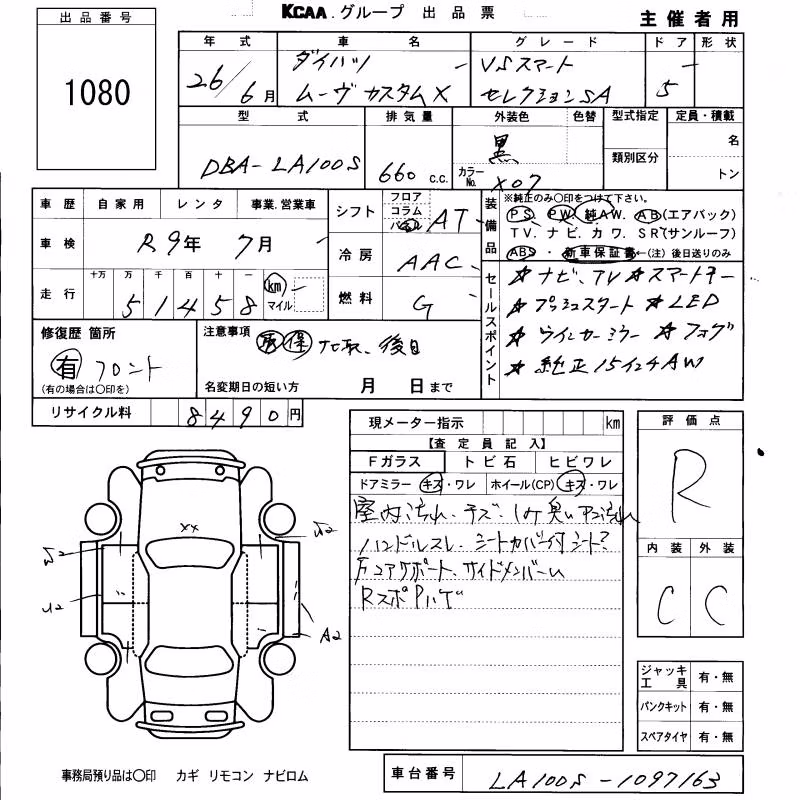 出品番号
1080
KCAA.グループ 出品票
主催者用
年式 車名 グレード ドア 形状
26/6月 ダイハツ ムーヴ カスタムX VSスマート セレクションSA 5
型式 排気量 外装色 色替 型式指定 定員・積載
DBA-LA100S 660 c.c. 黒 カラーNo. X07 類別区分 名 トン
車歴 自家用 レンタ 事業.営業車
シフト フロア コラム パネル AT
装備品
※純正のみ〇印をつけて下さい。
PS. PW. 純AW. AB(エアバック)
TV. ナビ. カワ. SR(サンルーフ)
ABS ・ 新車保証書←(注)後日送りのみ
車検 R9年 7月
冷房 AAC
走行 十万 万 千 百 十 一
51458 km マイル
燃料 G
セールスポイント
☆ナビ、TV ☆スマートキー
☆プッシュスタート ☆LED
☆ウインカーミラー ☆フォグ
☆純正15インチAW
修復歴 箇所
有 フロント
(有の場合は〇印を)
注意事項
保 ナビ取、後日
名変期日の短い方 月 日まで
リサイクル料 8490円
現メーター指示 km
【査定員記入】
Fガラス トビ石 ヒビワレ
ドアミラー キズ・ワレ ホイール(CP) キズ・ワレ
室内汚れ・キズ・シケ臭い
ハンドルスレ・シートカバー付シート?
Fコアサポート、サイドメンバー
RスポPハゲ
評価点
R
内装 外装
C C
XX
A2
ジャッキ工具 有・無
パンクキット 有・無
スペアタイヤ 有・無
事務局預り品は〇印 カギ リモコン ナビロム
車台番号 LA100S-1097163